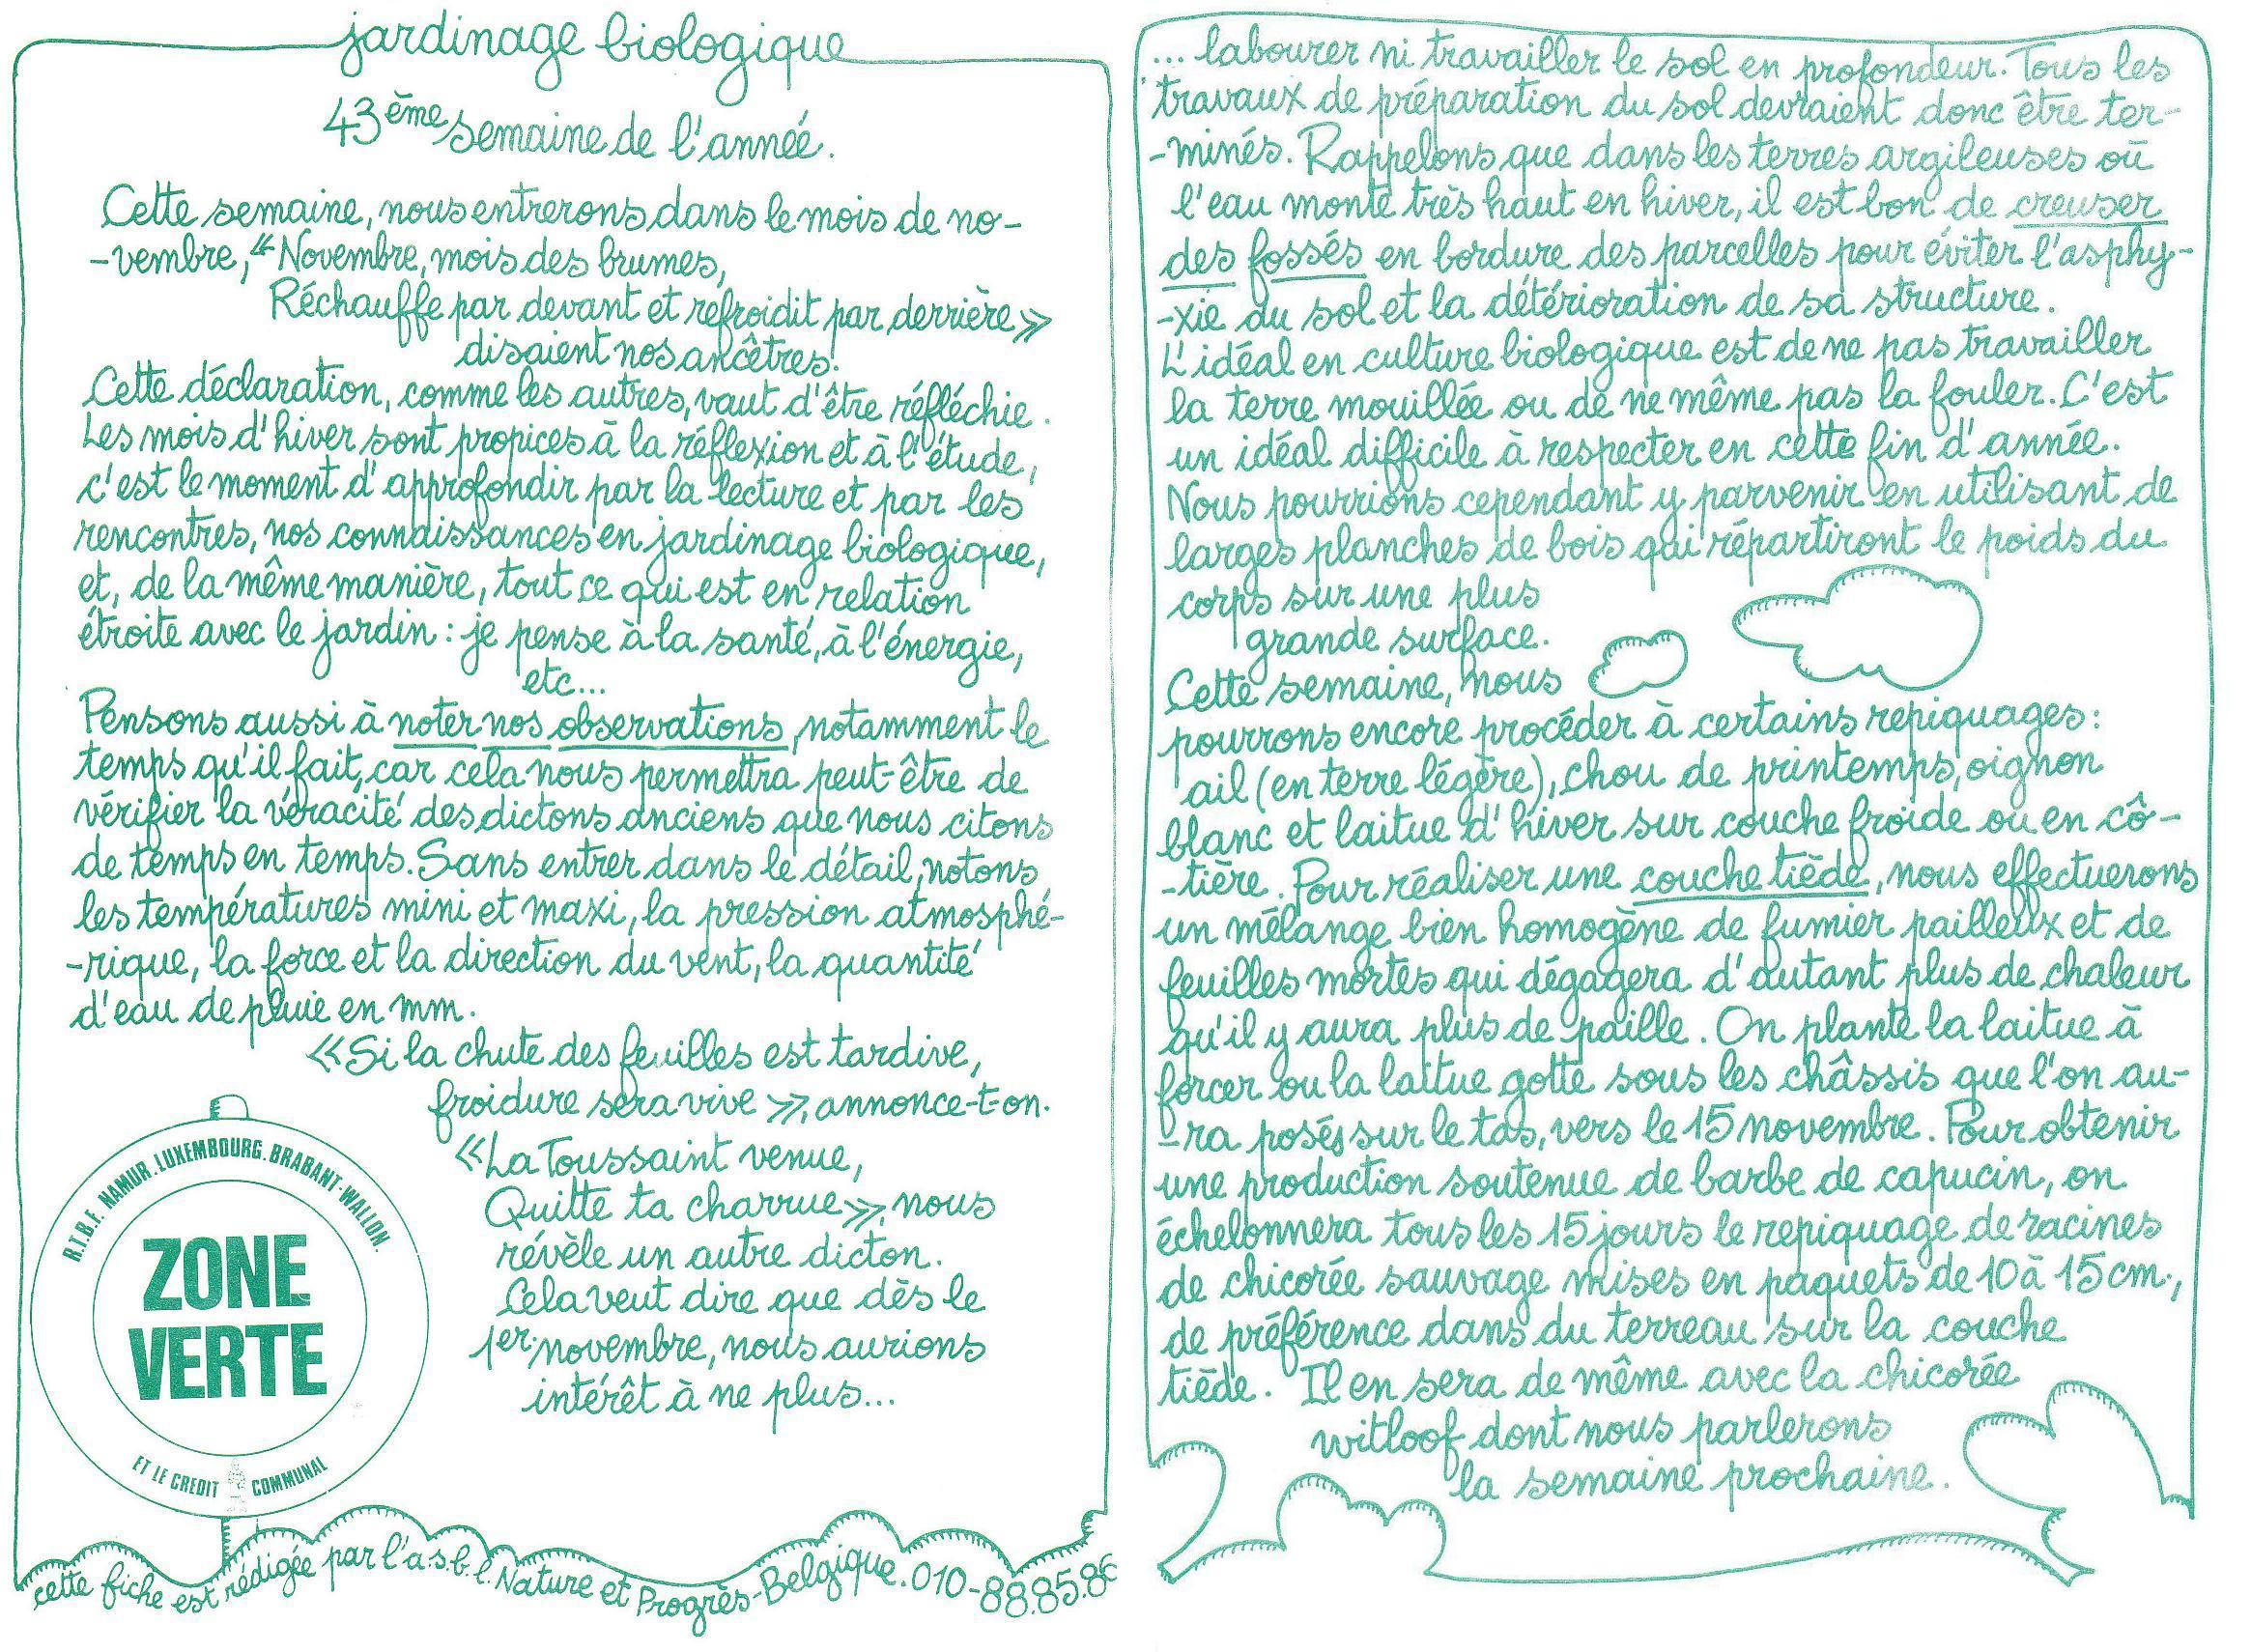 jardinage biologique
43ème semaine de l'année.
Cette semaine, nous entrerons dans le mois de no-
-vembre, « Novembre, mois des brumes,
Réchauffe par devant et refroidit par derrière »
disaient nos ancêtres.
Cette déclaration, comme les autres, vaut d'être réfléchie.
Les mois d'hiver sont propices à la réflexion et à l'étude,
c'est le moment d'approfondir par la lecture et par les
rencontres, nos connaissances en jardinage biologique,
et, de la même manière, tout ce qui est en relation
étroite avec le jardin : je pense à la santé, à l'énergie,
etc...
Pensons aussi à noter nos observations, notamment le
temps qu'il fait, car cela nous permettra peut-être de
vérifier la véracité des dictons anciens que nous citons
de temps en temps. Sans entrer dans le détail, notons
les températures mini et maxi, la pression atmosphé-
-rique, la force et la direction du vent, la quantité
d'eau de pluie en mm.
« Si la chute des feuilles est tardive,
froidure sera vive », annonce-t-on.
« La Toussaint venue,
Quitte ta charrue », nous
révèle un autre dicton.
Cela veut dire que dès le
1er novembre, nous aurions
intérêt à ne plus...
R.T.B.F. NAMUR. LUXEMBOURG. BRABANT-WALLON.
ZONE
VERTE
ET LE CREDIT COMMUNAL
cette fiche est rédigée par l'a.s.b.l. Nature et Progrès-Belgique. 010-88.85.86
... labourer ni travailler le sol en profondeur. Tous les
travaux de préparation du sol devraient donc être ter-
-minés. Rappelons que dans les terres argileuses où
l'eau monte très haut en hiver, il est bon de creuser
des fossés en bordure des parcelles pour éviter l'asphy-
-xie du sol et la détérioration de sa structure.
L'idéal en culture biologique est de ne pas travailler
la terre mouillée ou de ne même pas la fouler. C'est
un idéal difficile à respecter en cette fin d'année.
Nous pourrions cependant y parvenir en utilisant de
larges planches de bois qui répartiront le poids du
corps sur une plus
grande surface.
Cette semaine, nous
pourrons encore procéder à certains repiquages :
ail (en terre légère), chou de printemps, oignon
blanc et laitue d'hiver sur couche froide ou en cô-
-tière. Pour réaliser une couche tiède, nous effectuerons
un mélange bien homogène de fumier pailleux et de
feuilles mortes qui dégagera d'autant plus de chaleur
qu'il y aura plus de paille. On plante la laitue à
forcer ou la laitue gotte sous les châssis que l'on au-
-ra posés sur le tas, vers le 15 novembre. Pour obtenir
une production soutenue de barbe de capucin, on
échelonnera tous les 15 jours le repiquage de racines
de chicorée sauvage mises en paquets de 10 à 15 cm.,
de préférence dans du terreau sur la couche
tiède. Il en sera de même avec la chicorée
witloof dont nous parlerons
la semaine prochaine.